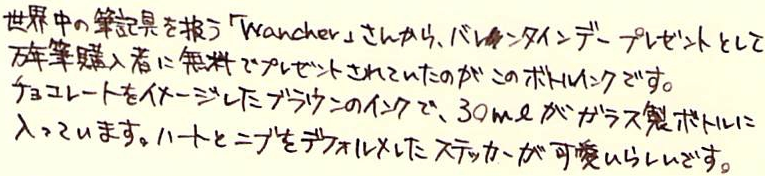 世界中の筆記具を扱う「Wancher」さんから、バレンタインデープレゼントとして
万年筆購入者に無料でプレゼントされていたのがこのボトルインクです。
チョコレートをイメージしたブラウンのインクで、30mlがガラス製ボトルに
入っています。ハートとニブをデフォルメしたステッカーが可愛いらしいです。